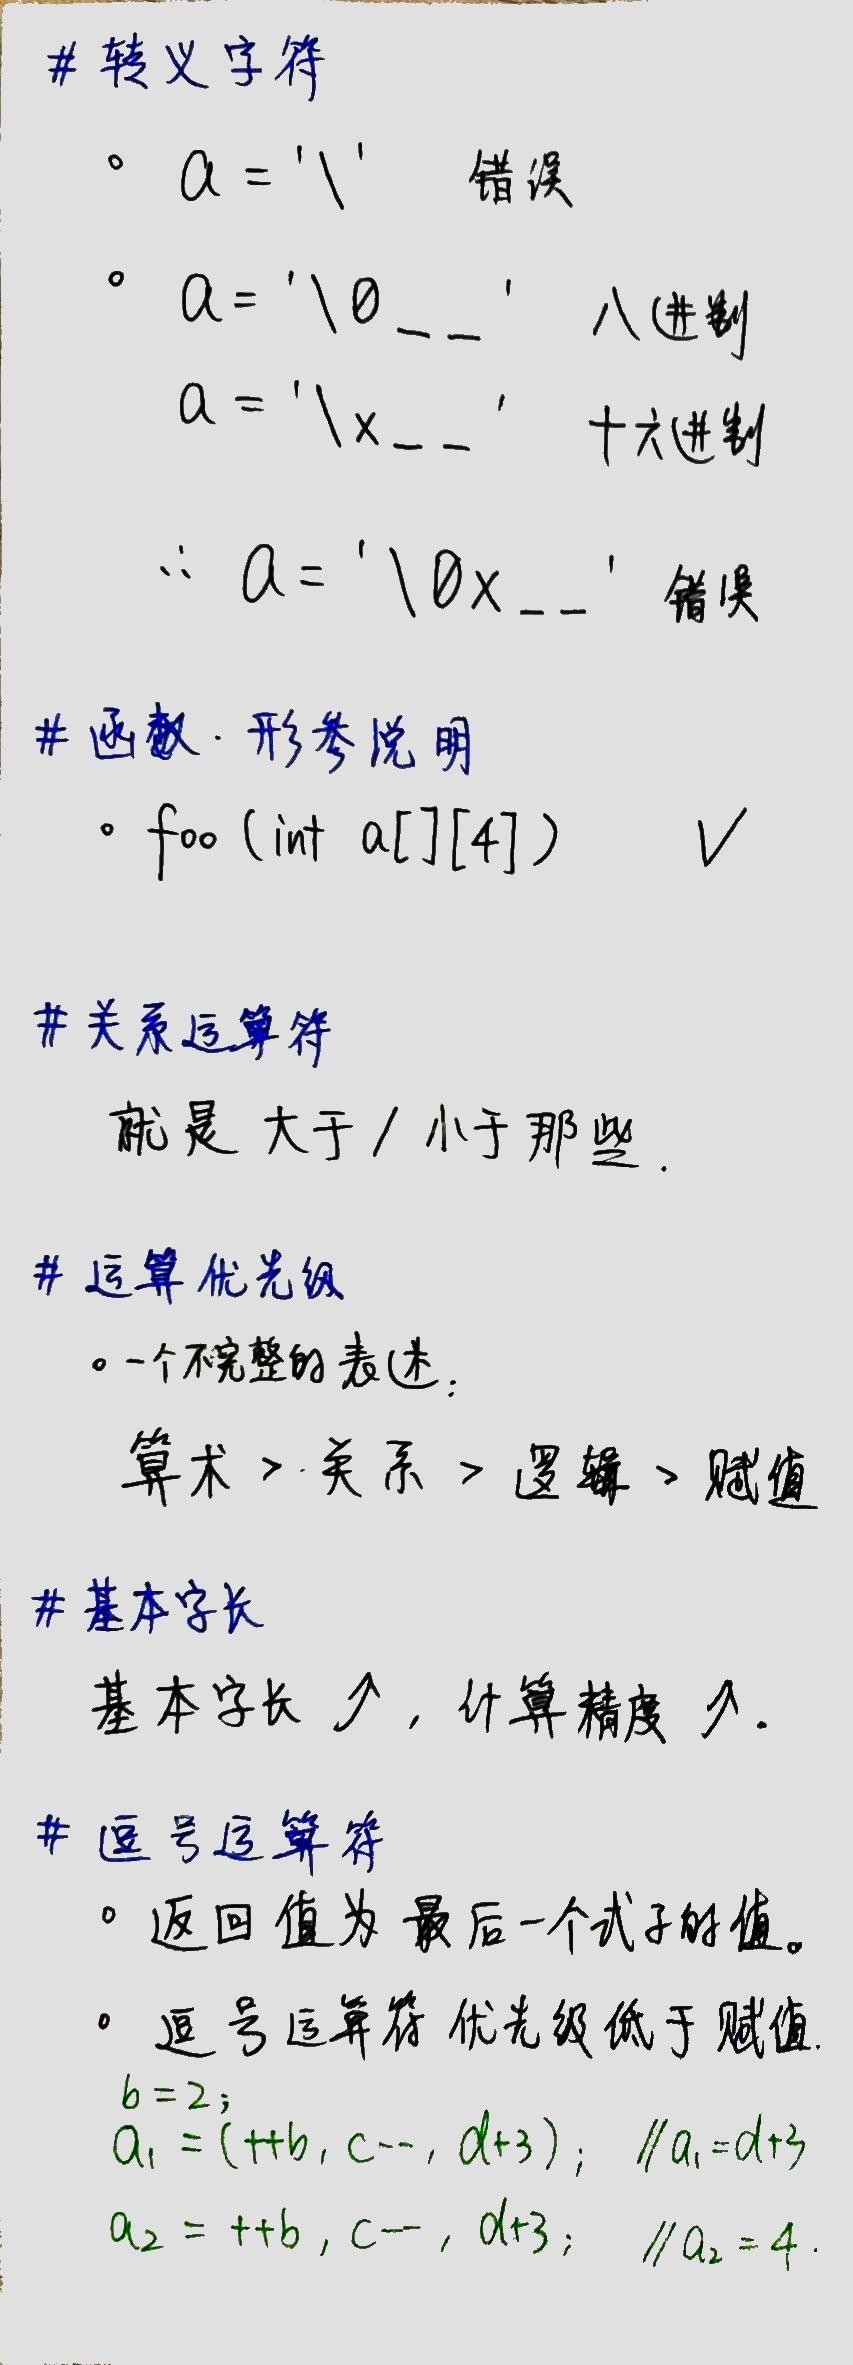 # 转义字符
。 a = '\' 错误
。 a = '\0_ _' 八进制
a = '\x_ _' 十六进制
∴ a = '\0x_ _' 错误
# 函数·形参说明
。 foo (int a[][4]) √
# 关系运算符
就是 大于 / 小于那些.
# 运算优先级
。一个不完整的表述:
算术 > 关系 > 逻辑 > 赋值
# 基本字长
基本字长 ↗, 计算精度 ↗.
# 逗号运算符
。 返回值为最后一个式子的值。
。 逗号运算符优先级低于赋值.
b = 2;
a₁ = (++b, c--, d+3); //a₁=d+3
a₂ = ++b, c--, d+3; //a₂ = 4.